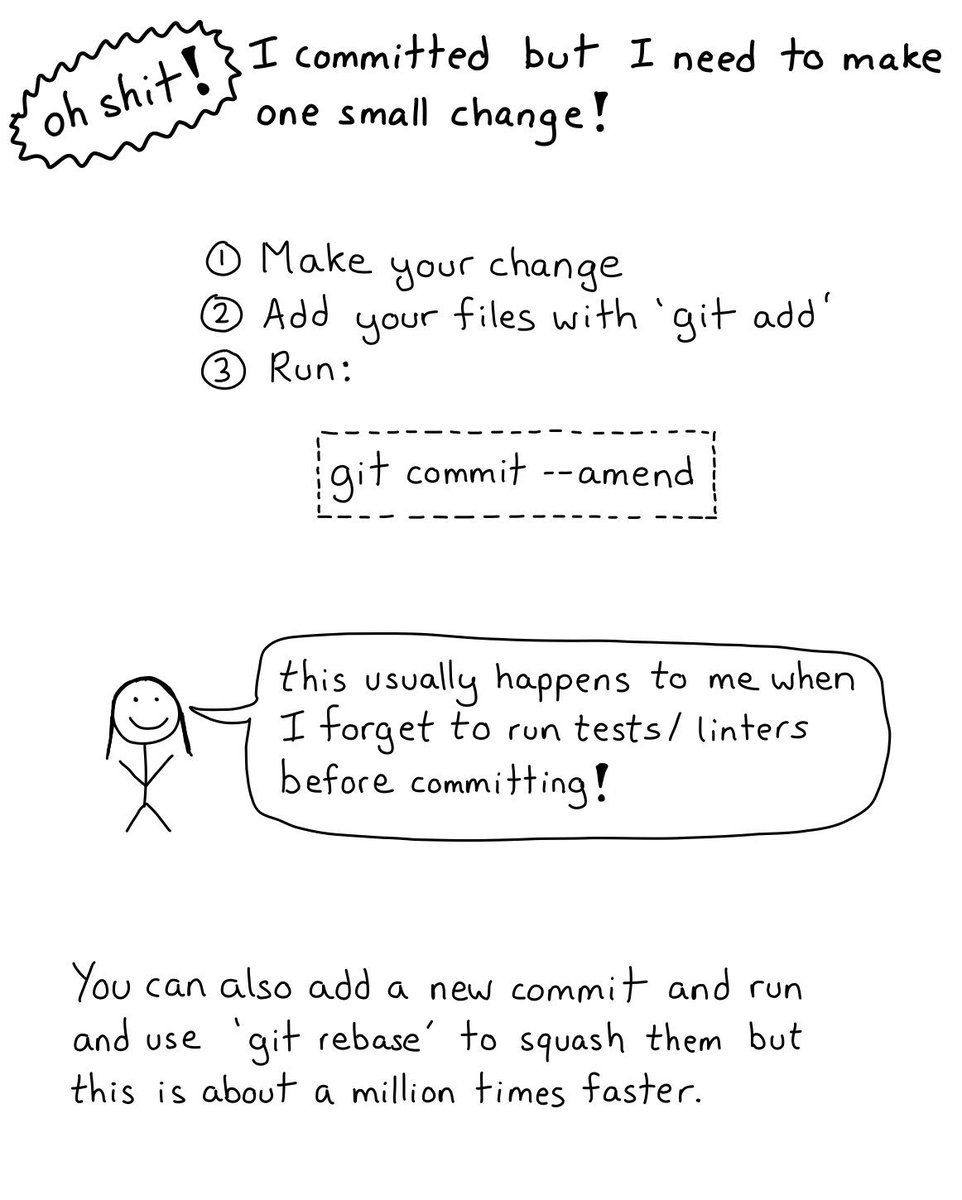 oh shit! I committed but I need to make
one small change!
① Make your change
② Add your files with 'git add'
③ Run:
git commit --amend
this usually happens to me when
I forget to run tests/ linters
before committing!
You can also add a new commit and run
and use 'git rebase' to squash them but
this is about a million times faster.